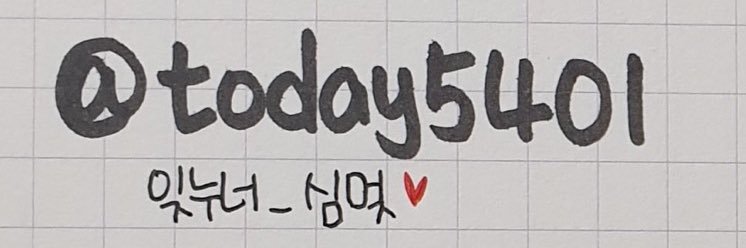 @today5401
잊누너_심몇♥